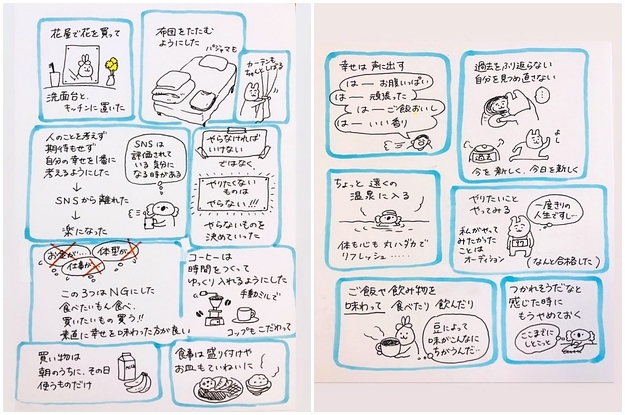 花屋で花を買って
洗面台と、
キッチンに置いた
布団をたたむ
ようにした
パジャマも
カーテンも
ちゃんとしばる
人のことを考えず
期待もせず
自分の幸せを1番に
考えるようにした
↓
SNSから離れた
↓
楽になった
SNSは
評価されて
いる気分に
なる時がある
やらなければ
いけない
ではなく
やりたくない
ものは
やらない!!!
やらないものを
決めていった
お金が…
体型が
仕事が
この3つはNGにした
食べたいもん食べ、
買いたいもの買う!!
素直に幸せを味わった方が良い
コーヒーは
時間をつくって
ゆっくり入れるようにした
手動ミルで
コップもこだわって
買い物は
朝のうちに、その日
使うものだけ
MILK
食事は盛り付けや
お皿もていねいに
幸せは声に出す
はー お腹いっぱい
はー 頑張った
はー ご飯おいし
はー いい香り
過去をふり返らない
自分を見つめ直さない
…
よし
今を新しく、今日を新しく
ちょっと遠くの
温泉に入る
体も心も丸ハダカで
リフレッシュ……
やりたいこと
やってみる
私がやって
みたかった
ことは
オーディション
一度きりの
人生ですし…
(なんと合格した)
ご飯や飲み物を
味わって 食べたり 飲んだり
豆によって
味がこんなに
ちがうんだ…
つかれそうだなと
感じた時に
もうやめておく
ここまでに
しとこっと